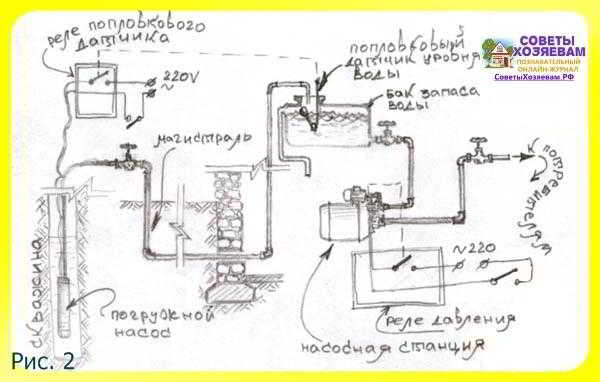 реле поплавкового
датчика
220V
~
поплавковый
датчик уровня
воды
СОВЕТЫ
ХОЗЯЕВАМ
ПОЗНАВАТЕЛЬНЫЙ
ОНЛАЙН-ЖУРНАЛ
СоветыХозяевам.РФ
бак запаса
воды
магистраль
к потребителям
скважина
погружной
насос
~220
реле давления
насосная станция
Рис. 2